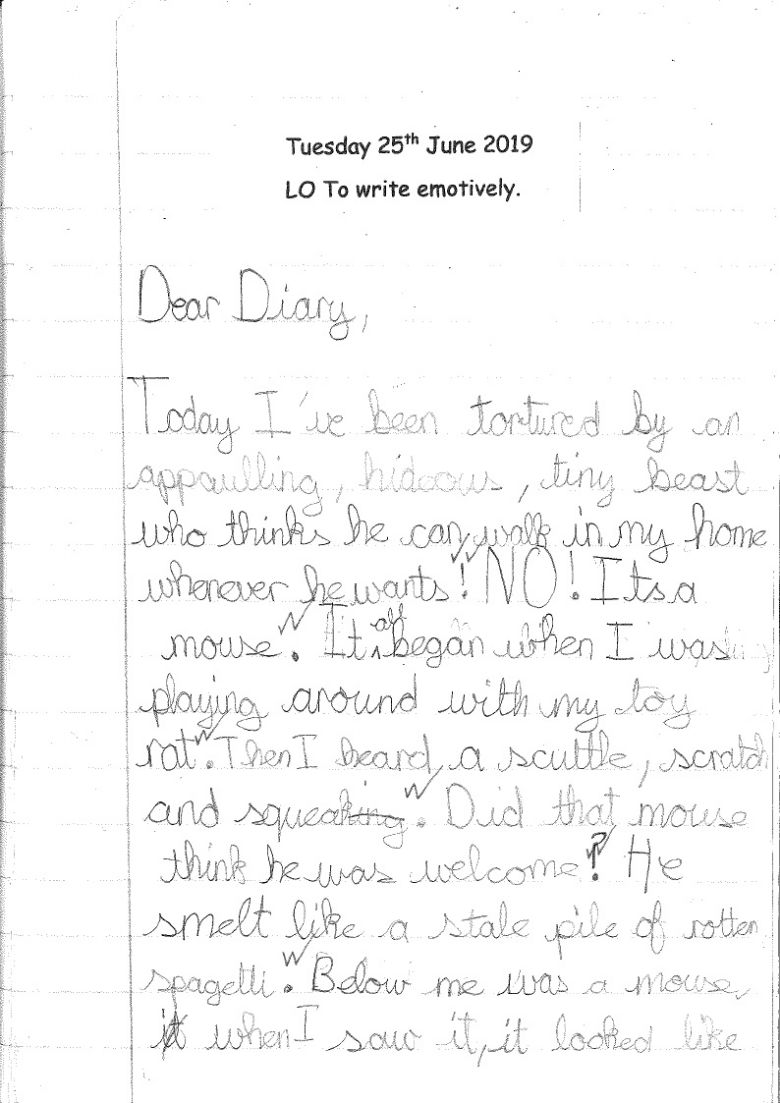 Tuesday 25th June 2019
LO To write emotively.
Dear Diary,
Today I've been tortured by an
appaulling, hideous, tiny beast
who thinks he can walk in my home
whenever he wants! NO! Its a
mouse. It all began when I was
playing around with my toy
rat. Then I heard a scuttle, scratch
and squeaking. Did that mouse
think he was welcome? He
smelt like a stale pile of rotten
spagetti. Below me was a mouse,
when I saw it, it looked like